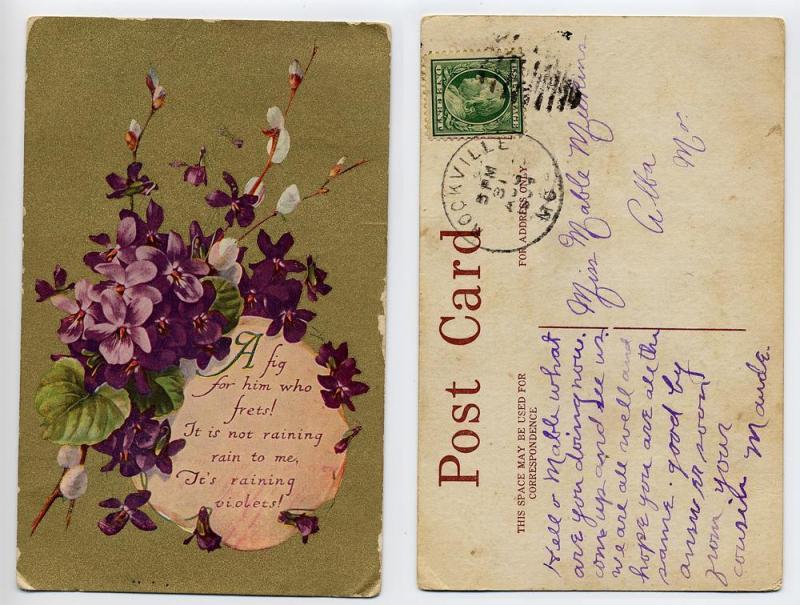 A fig
for him who
frets!
It is not raining
rain to me,
It's raining
violets!
Post Card
THIS SPACE MAY BE USED FOR
CORRESPONDENCE
FOR ADDRESS ONLY
U.S. POSTAGE
ONE CENT
ROCKVILLE
5 PM
31
AUG
MO.
Hello Mable what
are you doing now.
come up and see us
we are all well and
hope you are all the
same. good by
answer soon
from your
cousin Maude.
Miss Mable
Alba
Mo.